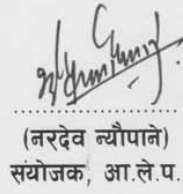 (नरदेव न्यौपाने)
संयोजक, आ.ले.प.